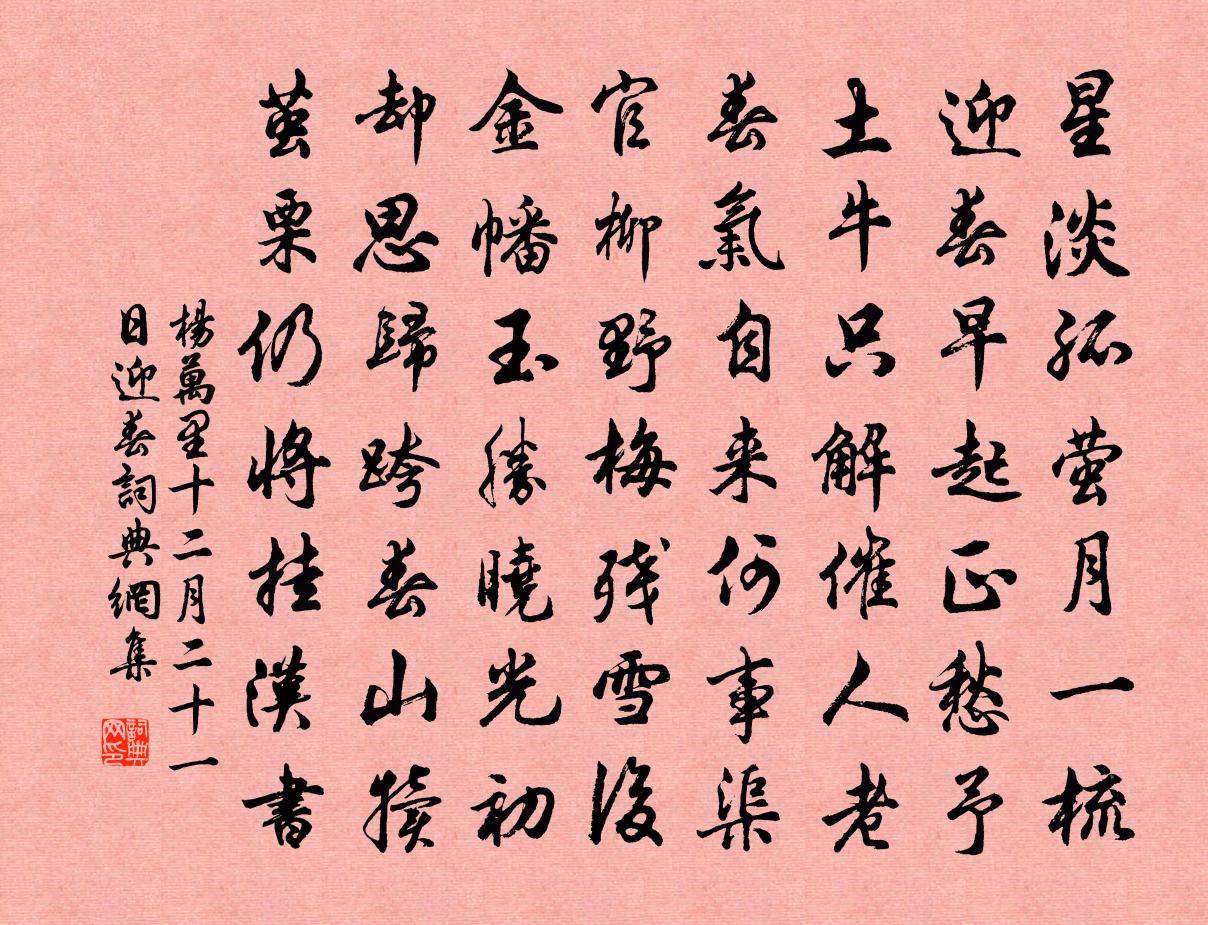 星淡孤萤月一梳
迎春早起正愁予
土牛只解催人老
春氣自来何事渠
官柳野梅残雪後
金幡玉勝曉光初
却思歸跨春山犢
茧栗仍將挂漢書
楊萬里十二月二十一
日迎春詞典網集
詞典
网印